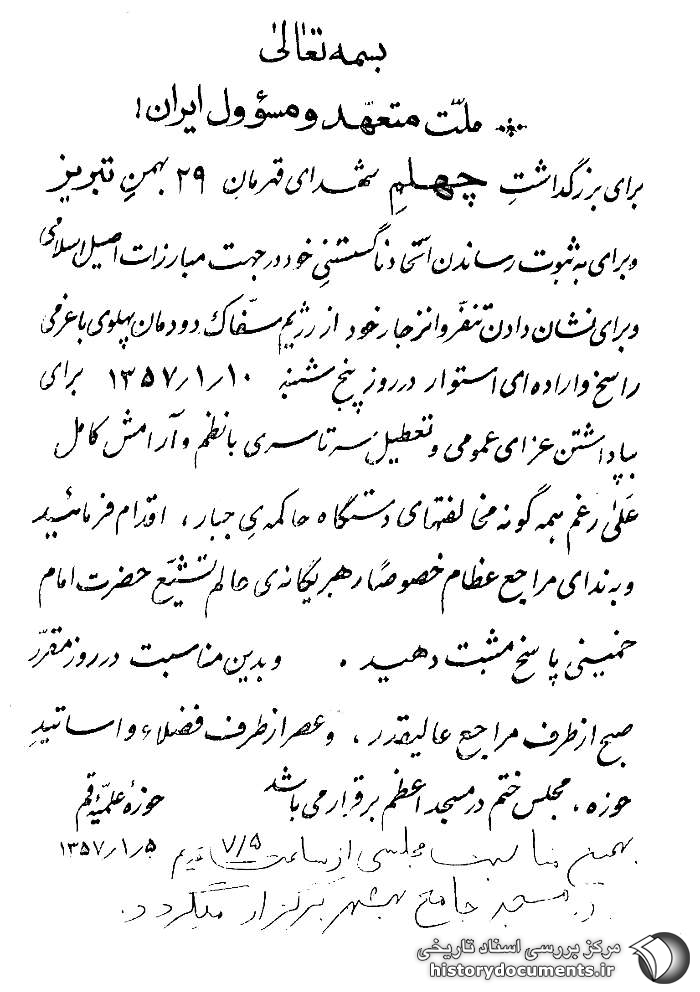 بسمه تعالیٰ
ملّت متعهّد و مسؤول ایران!
برای بزرگداشتِ چهلمِ شهدای قهرمانِ ۲۹ بهمنِ تبریز
و برای به ثبوت رساندن اتّحاد ناگسستنیِ خود در جهت مبارزات اصیل اسلامی
و برای نشان دادن تنفّر و انزجار خود از رژیمِ سفّاک دودمان پهلوی با عزمی
راسخ و اراده‌ای استوار در روز پنج شنبه ۱۳۵۷/۱/۱۰ برای
بپاداشتن عزای عمومی و تعطیل سرتاسری با نظم و آرامش کامل
عَلیٰ رغم همه گونه مخالفتهای دستگاه حاکمه‌یِ جبار، اقدام فرمائید
و به ندای مراجع عظام خصوصاً رهبر یگانه‌ی عالم تشیّع حضرت امام
خمینی پاسخ مثبت دهید. و بدین مناسبت در روز مقرّر
صبح از طرف مراجع عالیقدر، و عصر از طرف فضلاء و اساتیدِ
حوزه، مجلس ختم در مسجد اعظم برقرار می باشد
حوزهٔ علمیّهٔ قم
۱۳۵۷/۱/۵
بهمین مناسبت مجلسی از ساعت ۷/۵
در مسجد جامع بهشهر برگزار میگردد.
مرکز بررسی اسناد تاریخی
historydocuments.ir